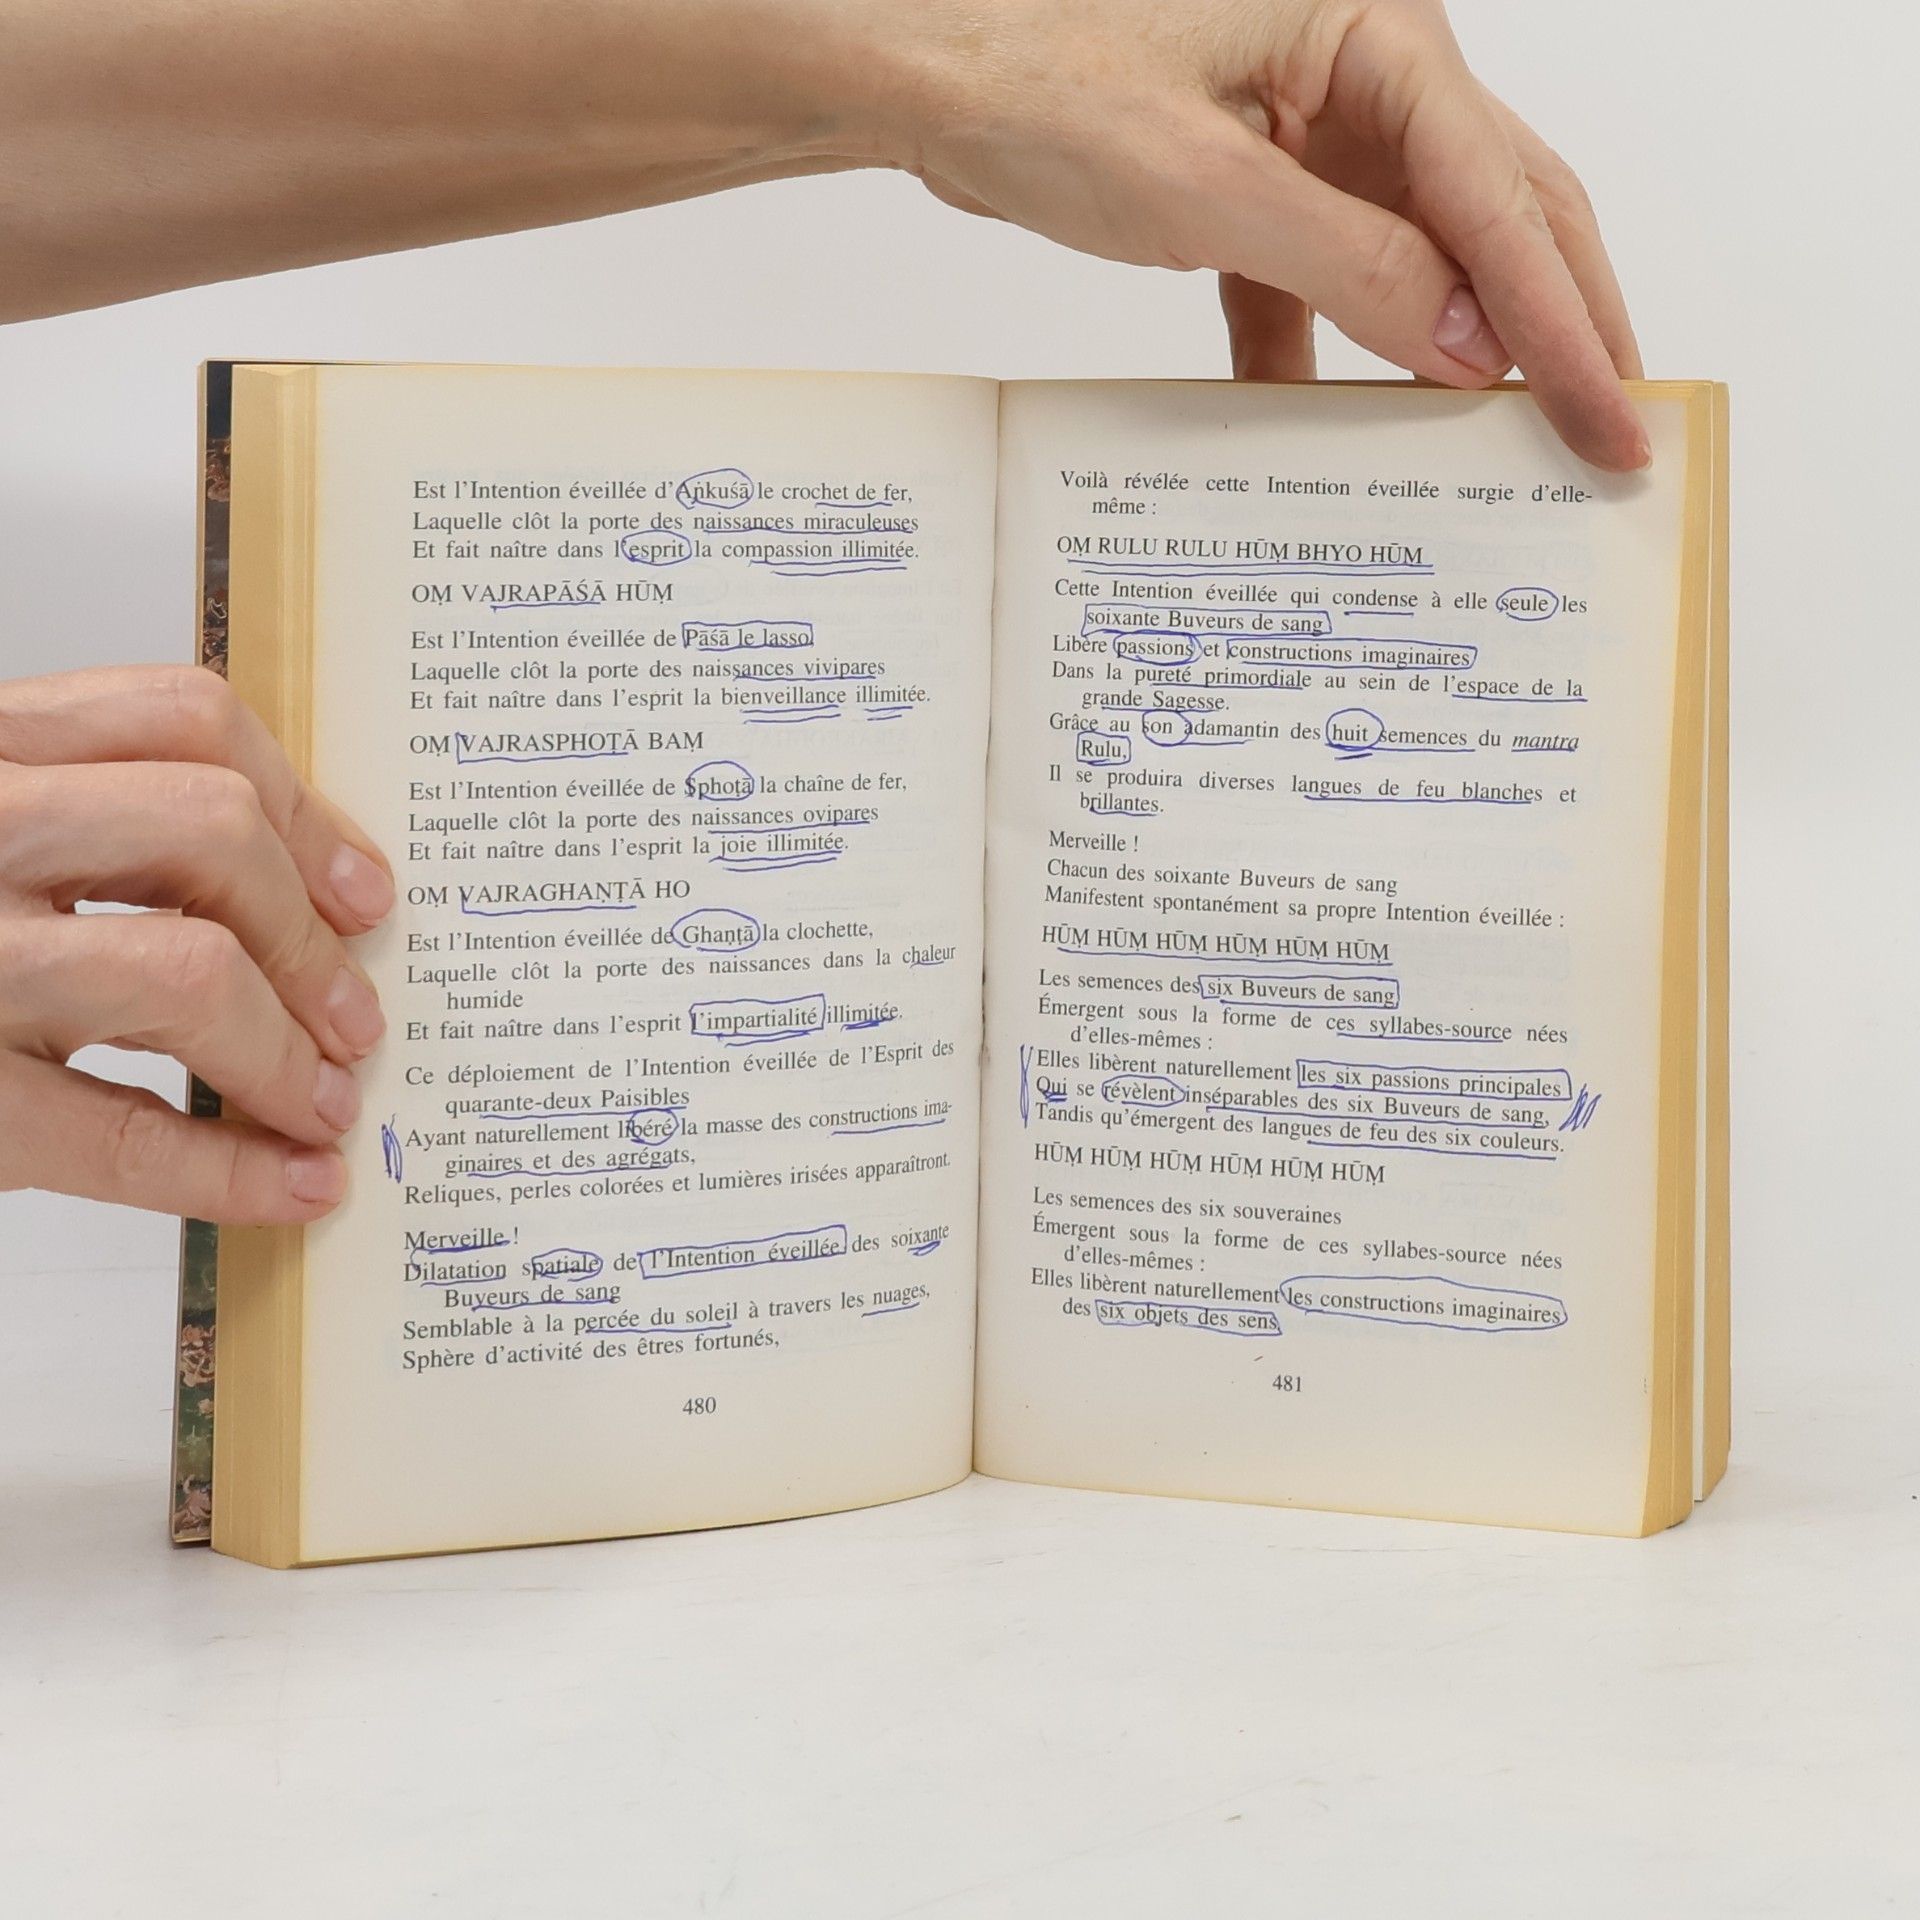 Est l'Intention éveillée d'Aṅkuśā le crochet de fer,
Laquelle clôt la porte des naissances miraculeuses
Et fait naître dans l'esprit la compassion illimitée.
OṂ VAJRAPĀŚĀ HŪṂ
Est l'Intention éveillée de Pāśā le lasso
Laquelle clôt la porte des naissances vivipares
Et fait naître dans l'esprit la bienveillance illimitée.
OṂ VAJRASPHOṬĀ BAṂ
Est l'Intention éveillée de Sphoṭā la chaîne de fer,
Laquelle clôt la porte des naissances ovipares
Et fait naître dans l'esprit la joie illimitée.
OṂ VAJRAGHAṆṬĀ HO
Est l'Intention éveillée de Ghaṇṭā la clochette,
Laquelle clôt la porte des naissances dans la chaleur
humide
Et fait naître dans l'esprit l'impartialité illimitée.
Ce déploiement de l'Intention éveillée de l'Esprit des
quarante-deux Paisibles
Ayant naturellement libéré la masse des constructions ima-
ginaires et des agrégats,
Reliques, perles colorées et lumières irisées apparaîtront.
Merveille !
Dilatation spatiale de l'Intention éveillée des soixante
Buveurs de sang
Semblable à la percée du soleil à travers les nuages,
Sphère d'activité des êtres fortunés,
480
Voilà révélée cette Intention éveillée surgie d'elle-
même :
OṂ RULU RULU HŪṂ BHYO HŪṂ
Cette Intention éveillée qui condense à elle seule les
soixante Buveurs de sang
Libère passions et constructions imaginaires
Dans la pureté primordiale au sein de l'espace de la
grande Sagesse.
Grâce au son adamantin des huit semences du mantra
Rulu,
Il se produira diverses langues de feu blanches et
brillantes.
Merveille !
Chacun des soixante Buveurs de sang
Manifestent spontanément sa propre Intention éveillée :
HŪṂ HŪṂ HŪṂ HŪṂ HŪṂ HŪṂ
Les semences des six Buveurs de sang
Émergent sous la forme de ces syllabes-source nées
d'elles-mêmes :
Elles libèrent naturellement les six passions principales
Qui se révèlent inséparables des six Buveurs de sang,
Tandis qu'émergent des langues de feu des six couleurs.
HŪṂ HŪṂ HŪṂ HŪṂ HŪṂ HŪṂ
Les semences des six souveraines
Émergent sous la forme de ces syllabes-source nées
d'elles-mêmes :
Elles libèrent naturellement les constructions imaginaires
des six objets des sens,
481